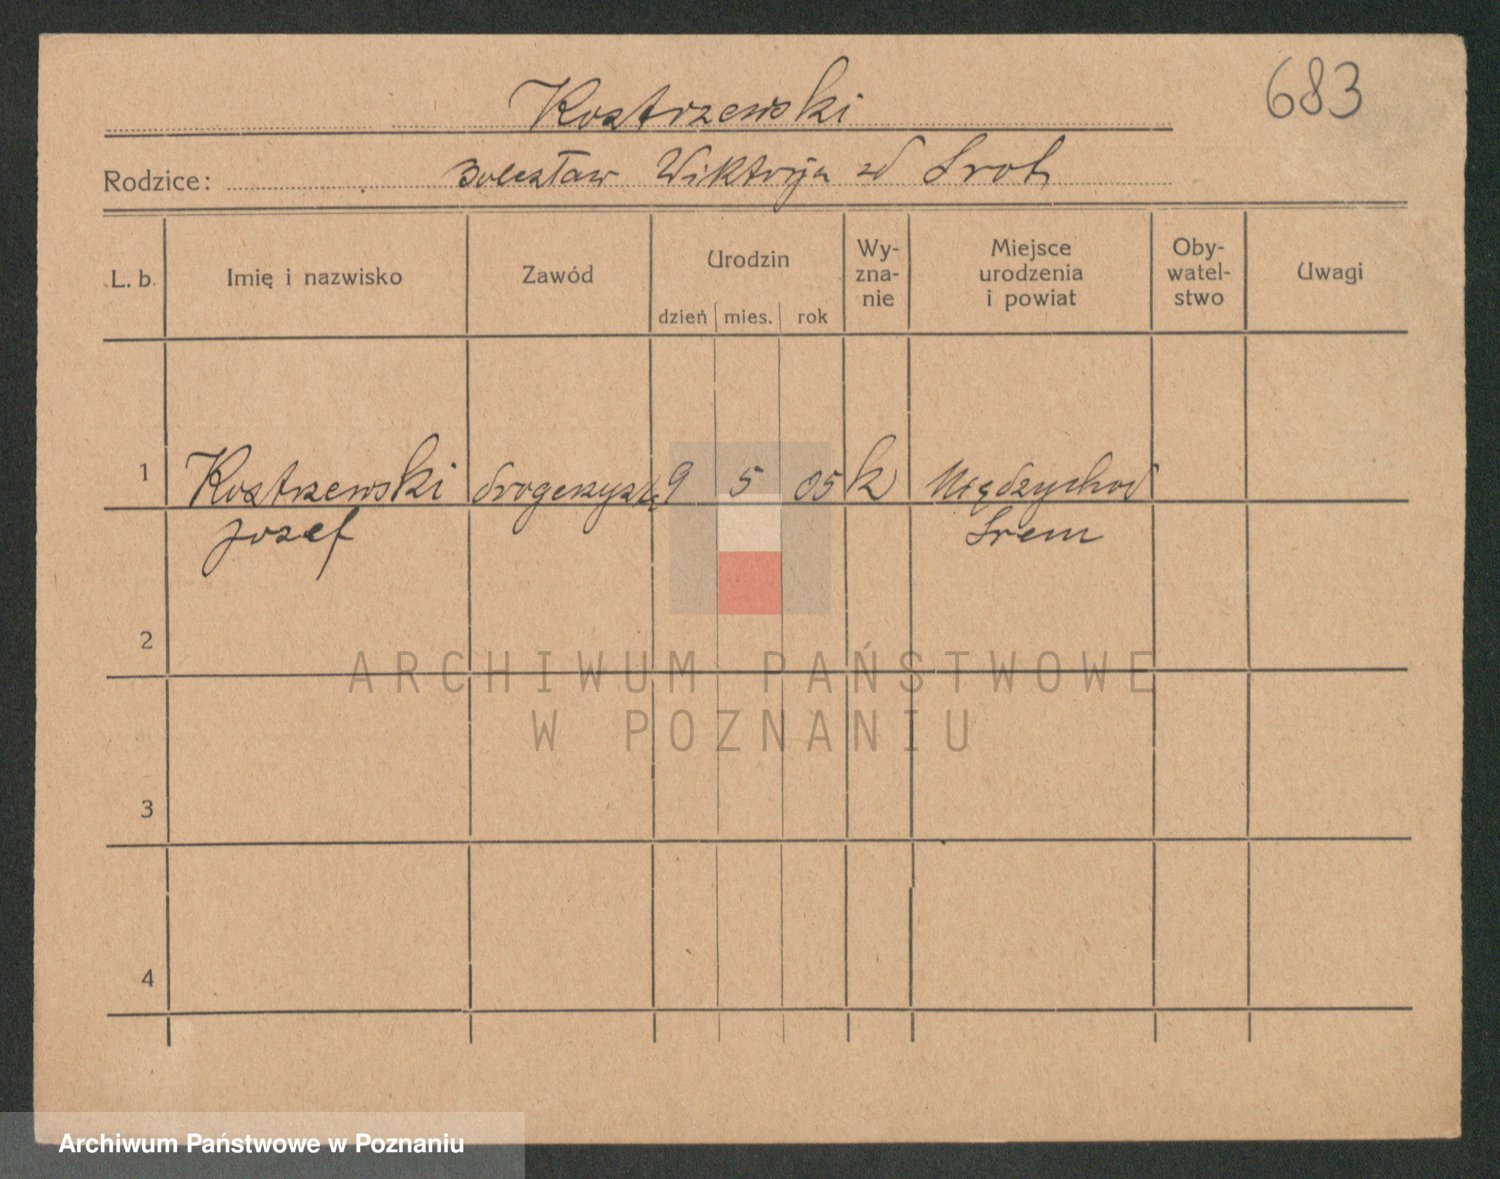 683
Kostrzewski
Rodzice: Bolesław Wiktorja zd Sroh
L. b.
Imię i nazwisko
Zawód
Urodzin
dzień mies. rok
Wy-
zna-
nie
Miejsce
urodzenia
i powiat
Oby-
watel-
stwo
Uwagi
1 Kostrzewski drogerzysta 9 5 05 k Międzychod
Jozef Srem
2
3
4
ARCHIWUM PAŃSTWOWE
W POZNANIU
Archiwum Państwowe w Poznaniu